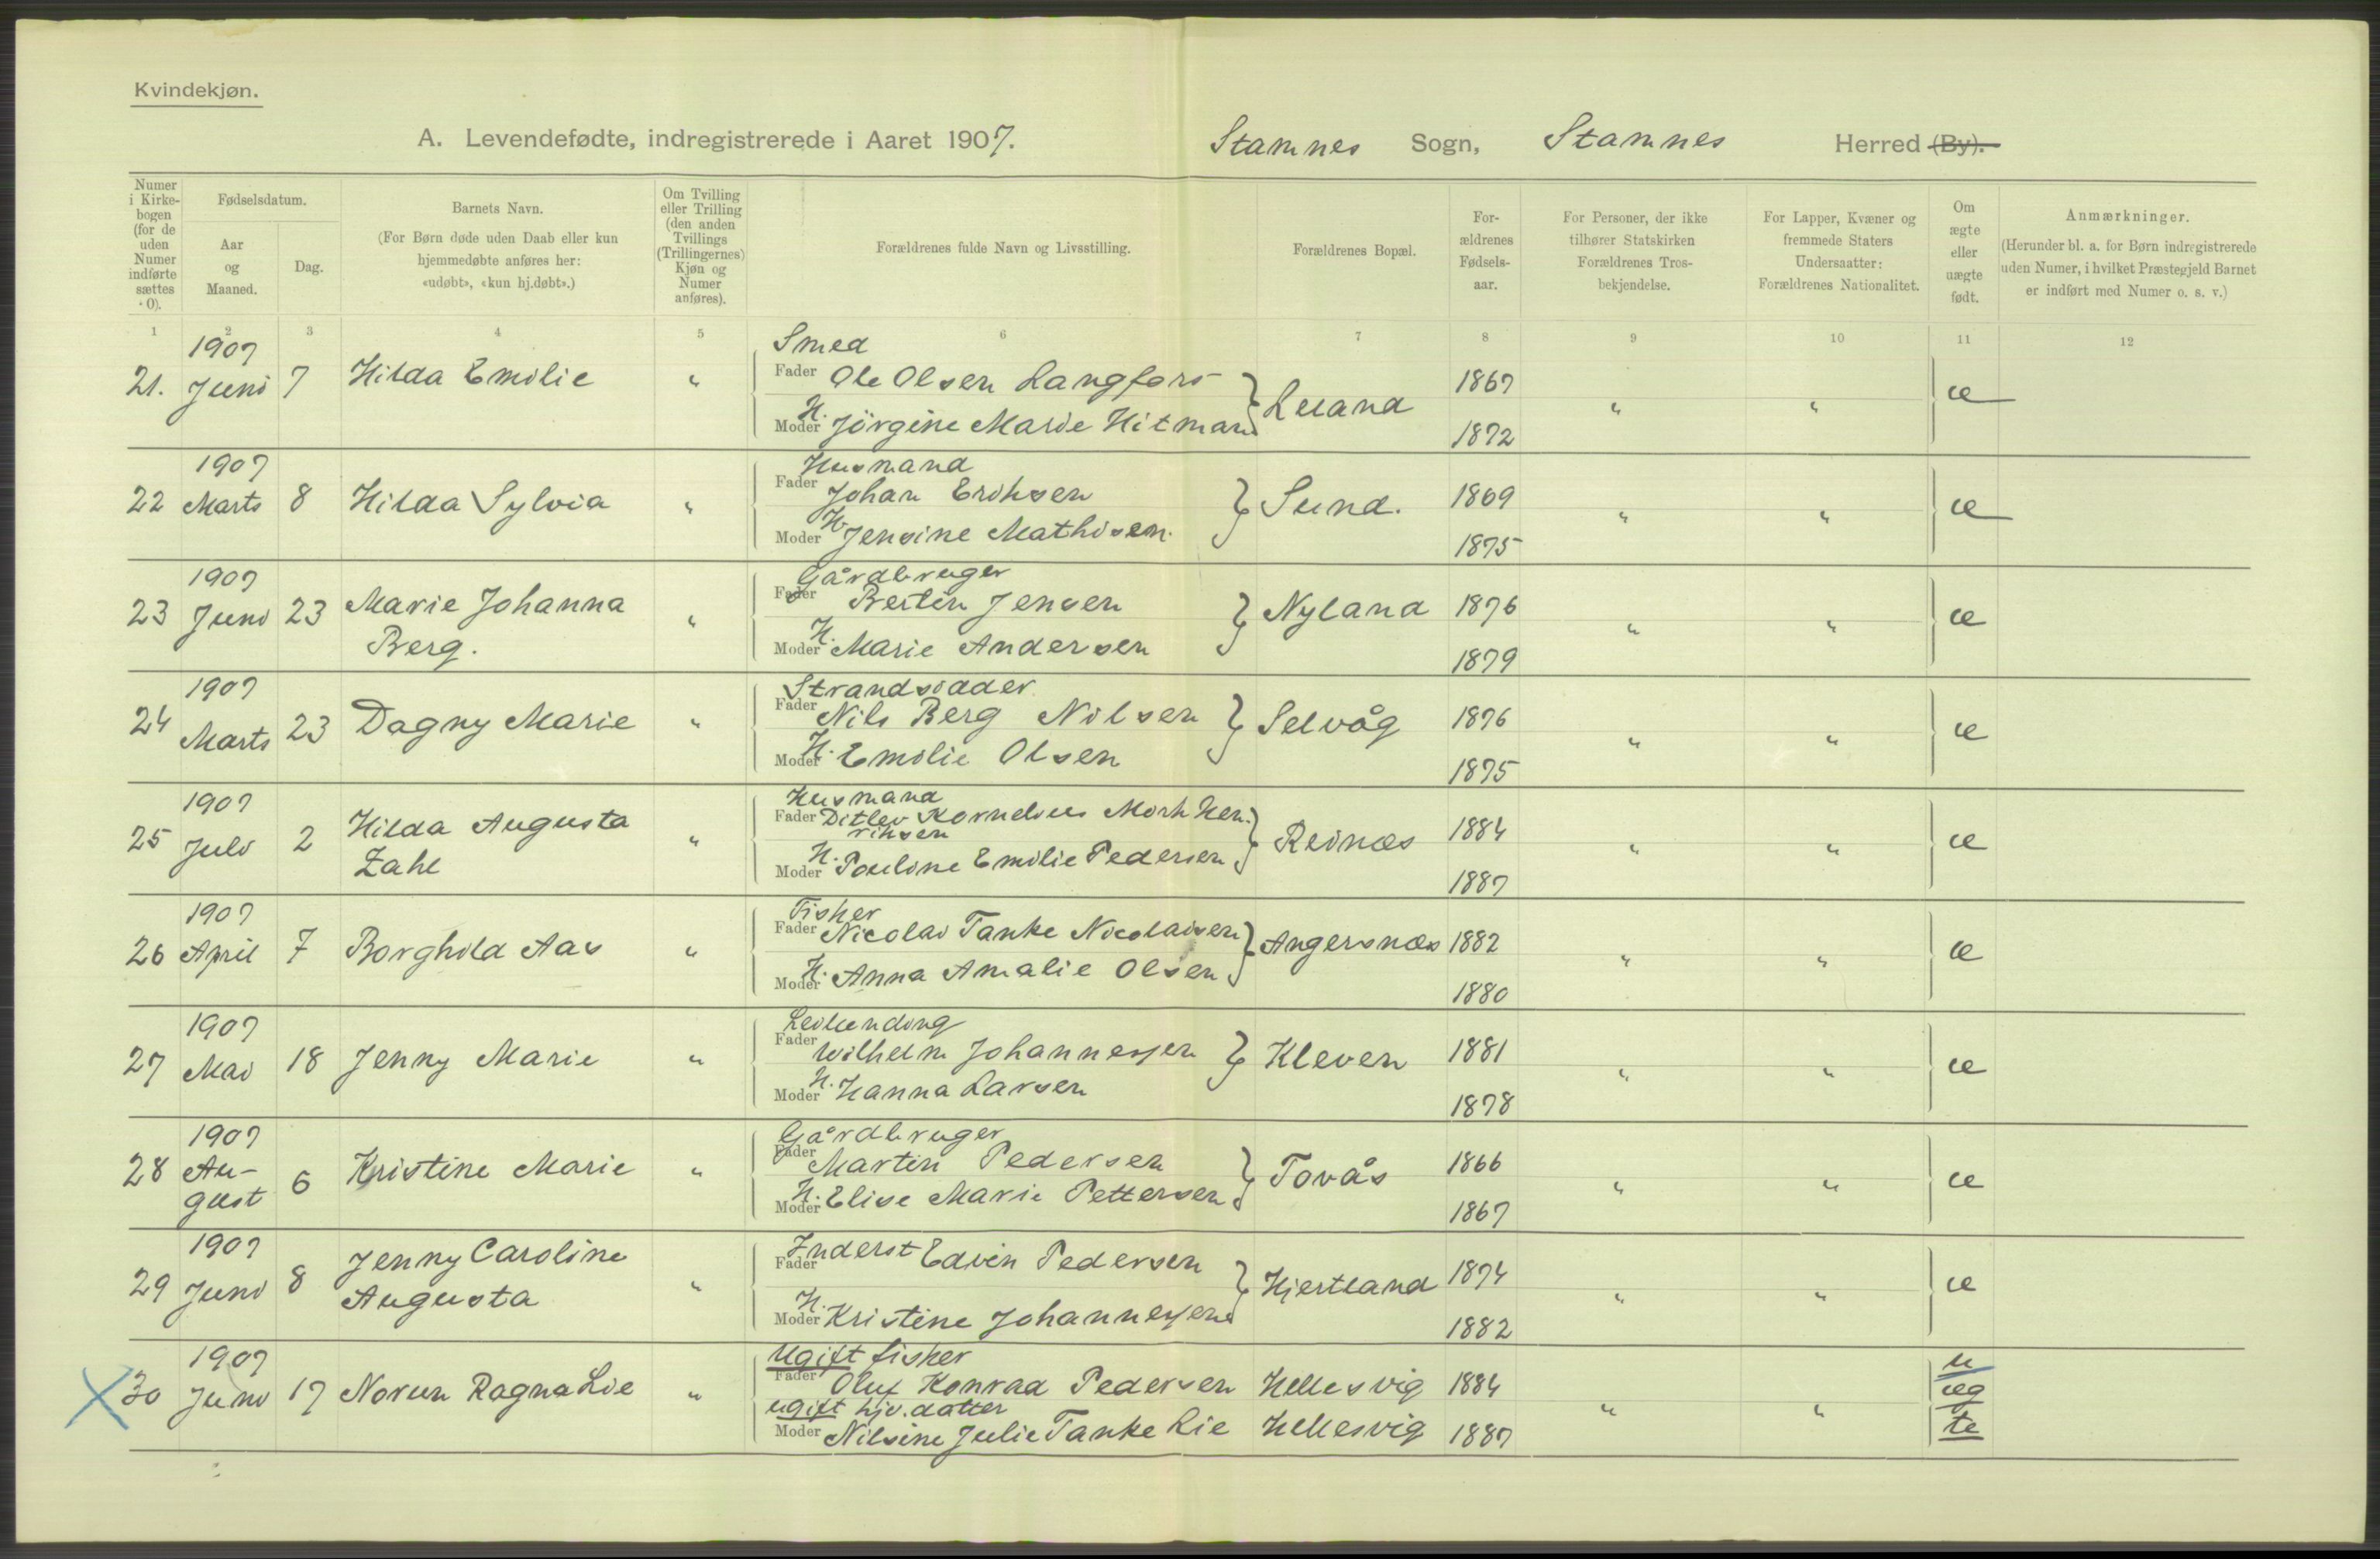 Kvindekjøn.
A. Levendefødte, indregistrerede i Aaret 1907. Stamnes Sogn, Stamnes Herred (By).
Numer i Kirkebogen (for de uden Numer indførte sættes 0).
Fødselsdatum.
Aar og Maaned.
Dag.
Barnets Navn.
(For Børn døde uden Daab eller kun hjemmedøbte anføres her: «udøbt», «kun hj.døbt».)
Om Tvilling eller Trilling (den anden Tvillings (Trillingernes) Kjøn og Numer anføres).
Forældrenes fulde Navn og Livsstilling.
Forældrenes Bopæl.
For-ældrenes Fødsels-aar.
For Personer, der ikke tilhører Statskirken Forældrenes Tros-bekjendelse.
For Lapper, Kvæner og fremmede Staters Undersaatter: Forældrenes Nationalitet.
Om ægte eller uægte født.
Anmærkninger.
(Herunder bl. a. for Børn indregistrerede uden Numer, i hvilket Præstegjeld Barnet er indført med Numer o. s. v.)
1 2 3 4 5 6 7 8 9 10 11 12
1907 Smed
21. Juni 7 Hilda Emilie " Fader Ole Olsen Langfors Leland 1867 " " æ
Moder H. Jörgine Marie Hitman 1872
1907 Husmand
22 Marts 8 Hilda Sylvia " Fader Johan Eriksen Sund. 1869 " " æ
Moder H. Jensine Mathisen. 1875
1907 Gårdbruger
23 Juni 23 Marie Johanna " Fader Bertin Jensen Nyland 1876 " " æ
Berg. Moder H. Marie Andersen 1879
1907 Strandsidder
24 Marts 23 Dagny Marie " Fader Nils Berg Nilsen Selvåg 1876 " " æ
Moder H. Emilie Olsen 1875
1907 Husmand
25 Juli 2 Hilda Augusta " Fader Ditlev Kornelius Mork Hen- Reinæs 1884 " " æ
riksen
Zahl Moder H. Pouline Emilie Pedersen 1887
1907 Fisker
26 April 7 Borghild Aas " Fader Nicolai Tanke Nicolaisen Angersnæs 1882 " " æ
Moder H. Anna Amalie Olsen 1880
1907 Leilending
27 Mai 18 Jenny Marie " Fader Wilhelm Johannessen Kleven 1881 " " æ
Moder H. Hanna Larsen 1878
1907 Gårdbruger
28 Au- 6 Kristine Marie " Fader Martin Pedersen Tovås 1866 " " æ
gust Moder H. Elise Marie Pettersen 1867
1907
29 Juni 8 Jenny Caroline " Fader Inderst Edvin Pedersen Hjertland 1874 " " æ
Augusta Moder H. Kristine Johannessen 1882
1907 Ugift fisker
30 Juni 17 Norun Ragna Lie " Fader Oluf Konrad Pedersen Hellesvig 1884 " " u
æg
ugift hjv. datter
Moder Nilsine Julie Tanke Lie Hellesvig 1887 te